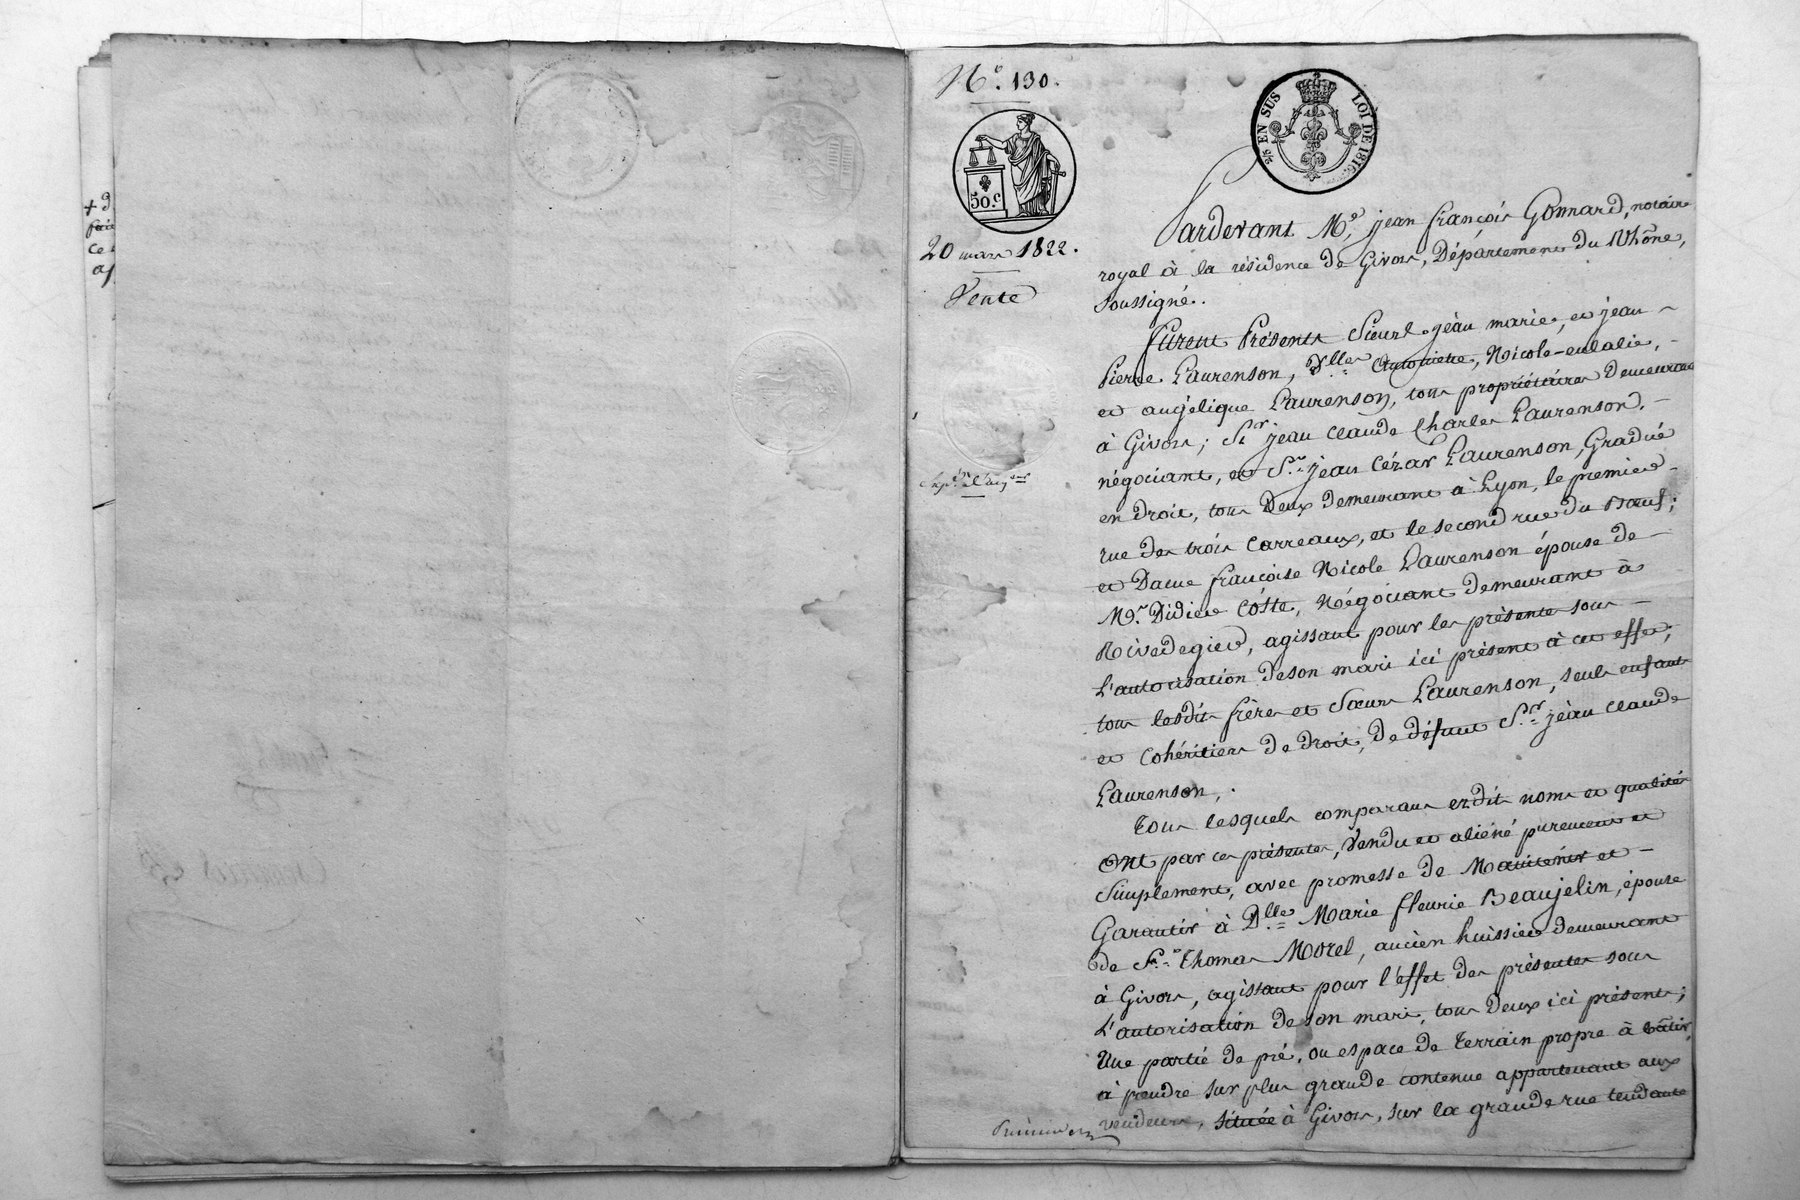 + d
ce
N.o 130.
EN SUS LOI DE 1816
50.c
20 mars 1822.
Vente
Pardevant M.e jean françois Gonnard, notaire
royal à la résidence de Givors, Département du Rhône,
soussigné.
furent Présents Sieurs jean marie, et jean
Pierre Laurenson, D.lles Antoinette, Nicole-eulalie,
et angélique Laurenson, tous propriétaires demeurant
à Givors; S.r jean claude Charles Laurenson,
négociant, et S.r jean Cézar Laurenson, Gradué
en droit, tous Deux demeurant à Lyon, le premier
rue des trois Carreaux, et le second rue du Bœuf;
et Dame françoise Nicole Laurenson épouse de
M.r Didier Coste, Négociant demeurant à
Rivedegier, agissant pour les présentes sous
L'autorisation de son mari ici présent à cet effet;
tous lesdits frères et Sœurs Laurenson, seuls enfants
et Cohéritiers de droit, de défunt S.r jean claude
Laurenson,.
Tous lesquels comparans ezdits noms et qualités
Ont par ces présentes, Vendu et aliéné purement et
Simplement, avec promesse de Maintenir et
Garantir à D.lle Marie fleurie Beaujelin, épouse
de S.r Thomas Morel, ancien huissier demeurant
à Givors, agissant pour l'effet des présentes sous
L'autorisation de son mari, tous Deux ici présents;
Une partie de pré, ou espace de Terrain propre à bâtir,
à prendre sur plus grande contenue appartenant aux
vendeurs, située à Givors, sur la grande rue tendante